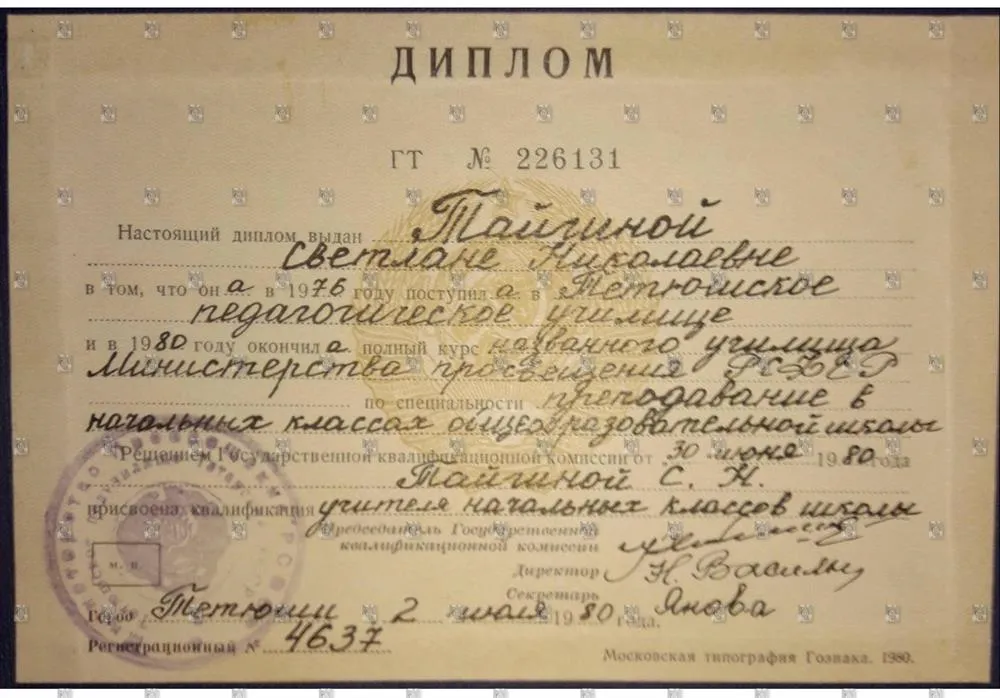 ДИПЛОМ
ГТ № 226131
Настоящий диплом выдан Тайгиной
Светлане Николаевне
в том, что она в 1976 году поступила в Тетюшское
педагогическое училище
и в 1980 году окончила полный курс названного училища
Министерства просвещения РСФСР
по специальности преподавание в
начальных классах общеобразовательной школы
Решением Государственной квалификационной комиссии от 30 июня 1980 года
Тайгиной С. Н.
присвоена квалификация учителя начальных классов школы
Председатель Государственной
квалификационной комиссии
Директор
Секретарь Янова
М. П.
Город Тетюши 2 июля 1980 года.
Регистрационный № 4637
Московская типография Гознака. 1980.